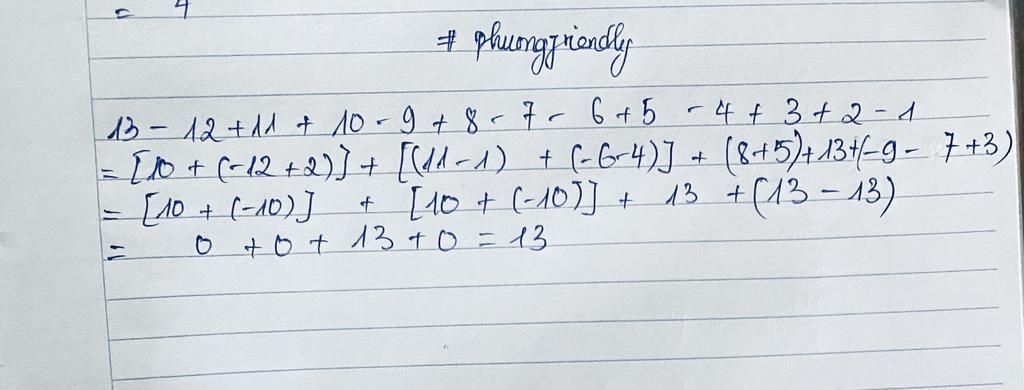 = 4
# phuongfriendly
13 - 12 + 11 + 10 - 9 + 8 - 7 - 6 + 5 - 4 + 3 + 2 - 1
= [10 + (-12 + 2)] + [(11 - 1) + (-6-4)] + (8+5)+13+(-9 - 7+3)
= [10 + (-10)] + [10 + (-10)] + 13 + (13 - 13)
= 0 + 0 + 13 + 0 = 13